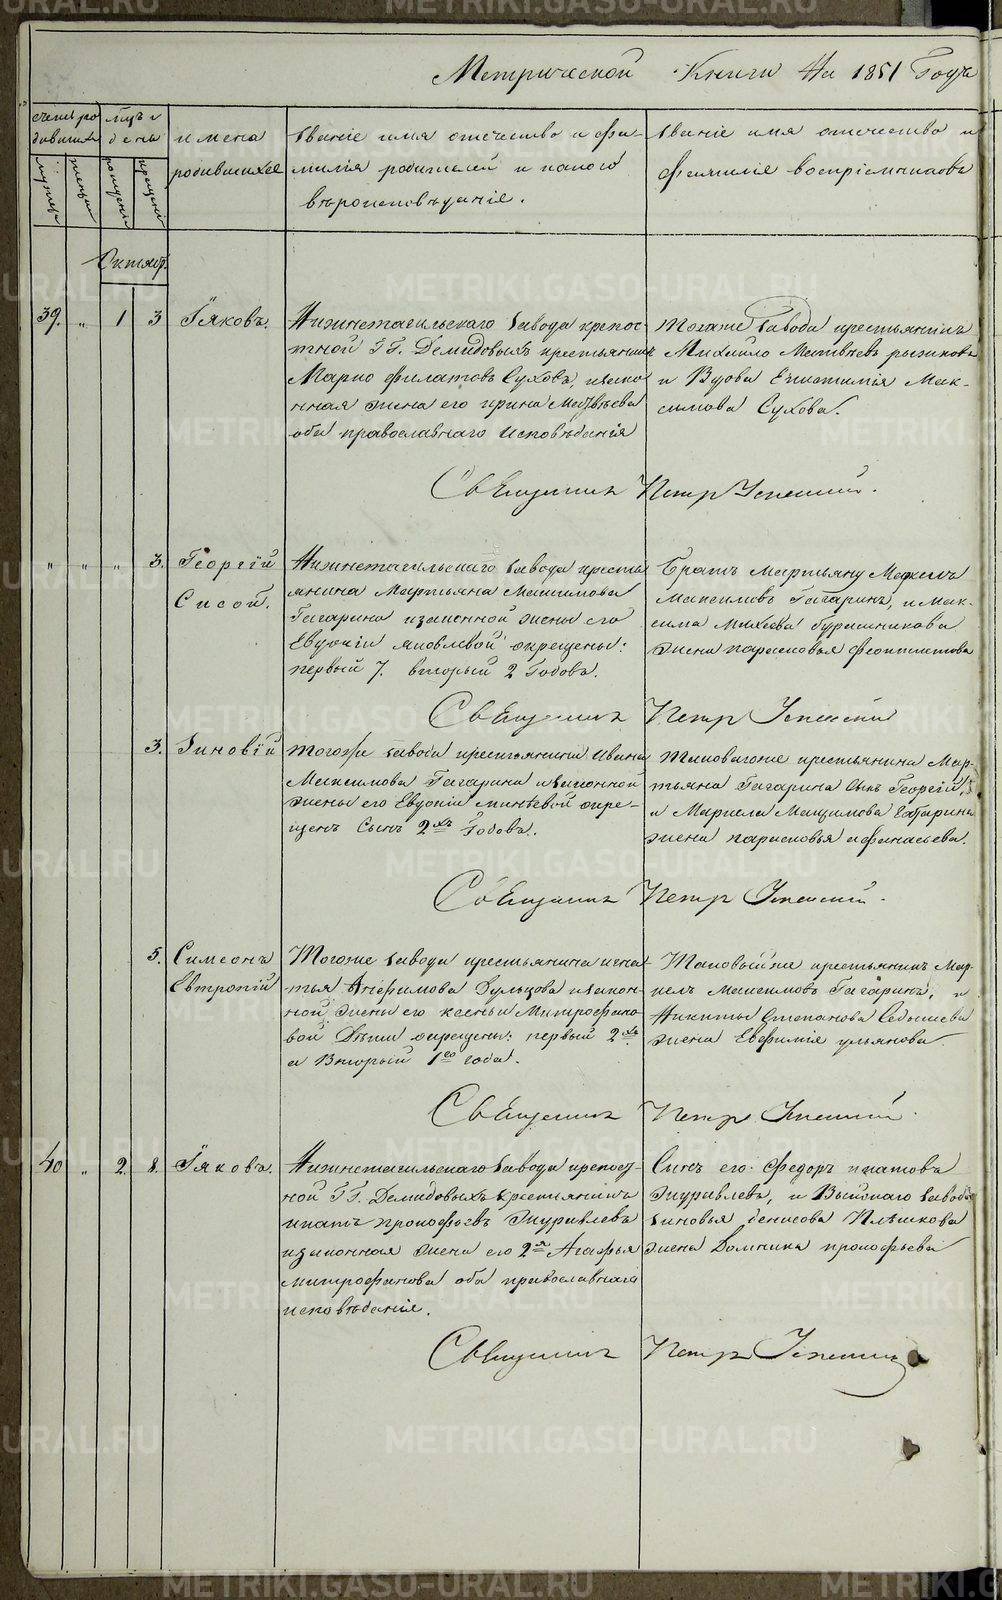 Метрической Книги На 1851 Годъ
счетъ ро-
дивших
мужеска
женска
мц ъ и
день
рожденія
крещенія
имена
родившихся
Званіе имя отечество и фа-
милія родителей и какого
вѣроисповѣданія.
Званіе имя отечество и
фамилія воспріемниковъ
Октяб.
39. " 1 3 Іяковъ.
Нижнетагильскаго завода крепос-
тной ГГ. Демидовыхъ крестьянинъ
Марко филатовъ Суховъ, изако-
нная жена его ирина Матвѣева
оба православнаго исповѣданія
Тогоже завода крестьянинъ
Михайло Матвѣевъ рыжковъ
и Вдова Епистимія Мак-
симова Сухова.
Священникъ Петръ Успенскій.
" " " 3. Георгій
Сисой.
Нижнетагильскаго завода кресть
янина Мартьяна Максимова
Гагарина изаконной жены его
Евдокіи яковлевой окрещены:
первый 7. вторый 2 Годовъ.
Братъ мартьяну Маркелъ
Максимовъ Гагаринъ, и Мак-
сима Михеева бурашникова
жена парасковья феоктистова
Священникъ Петръ Успенскій
3. Зиновій
тогоже завода крестьянина Ивана
Максимова Гагарина изаконной
жены его Евдокіи михѣевой окре-
щенъ Сынъ 2хъ Годовъ.
Таковагоже крестьянина Мар-
тьяна Гагарина Сынъ Георгій,
и Маркела Максимова Гагарина
жена парасковья афанасьева.
Священникъ Петръ Успенскій.
5. Симеонъ
Евтропій
Тогоже завода крестьянина игна-
тья Анфимова изакон-
ной жены его ксеньи Митрофано-
вой Дѣти окрещены: первый 2хъ
а Вторый 1го года.
Таковыйже крестьянинъ Мар-
келъ Максимовъ Гагаринъ, и
Никиты Степанова
жена Евфимія ульянова
Священникъ Петръ Успенскій.
40 " 2. 8. Іяковъ.
Нижнетагильскаго завода крепост-
ной ГГ. Демидовыхъ крестьянинъ
ипатъ прокофьевъ Журавлевъ
изаконная жена его 2я Агафья
митрофанова оба православнаго
исповѣданія.
Сынъ его федоръ ипатовъ
Журавлевъ, и Выйскаго завода
зиновья денисова Плѣшкова
жена Домника прокофьева
Священникъ Петръ Успенскій
METRIKI.GASO-URAL.RU